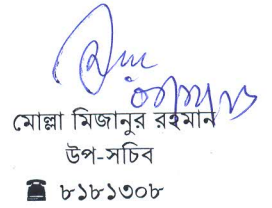 মোল্লা মিজানুর রহমান
উপ-সচিব
☎ ৮১৮১৩০৮